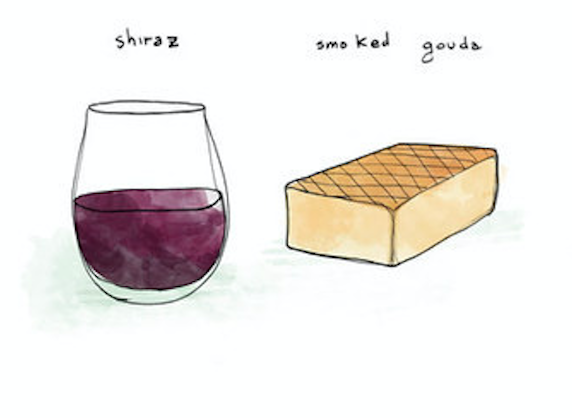 shiraz
smoked gouda